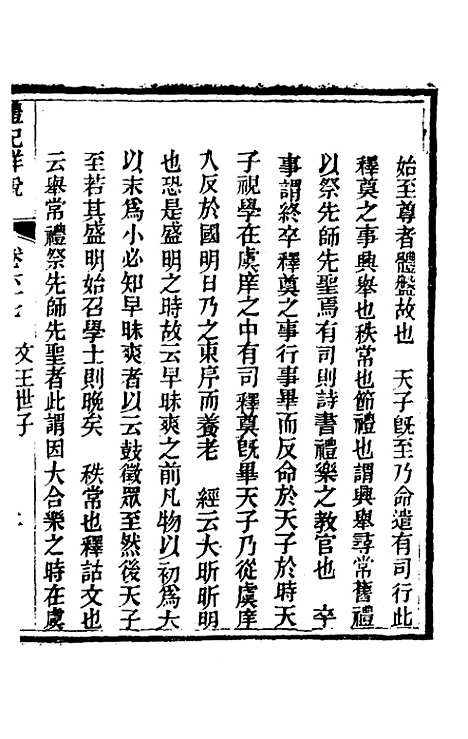 始至尊者體盤故也　天子旣至乃命遣有司行此
釋奠之事興舉也秩常也節禮也謂興舉尋常舊禮
以祭先師先聖焉有司則詩書禮樂之教官也　卒
事謂終卒釋奠之事行事畢而反命於天子於時天
子視學在虞庠之中有司釋奠旣畢天子乃從虞庠
入反於國明日乃之東序而養老　經云大昕昕明
也恐是盛明之時故云早昧爽之前凡物以初爲大
以末爲小必知早昧爽者以云鼓徵眾至然後天子
至若其盛明始召學士則晚矣　秩常也釋詁文也
云舉常禮祭先師先聖者此謂因大合樂之時在虞
禮記詳說　卷六十七　文王世子